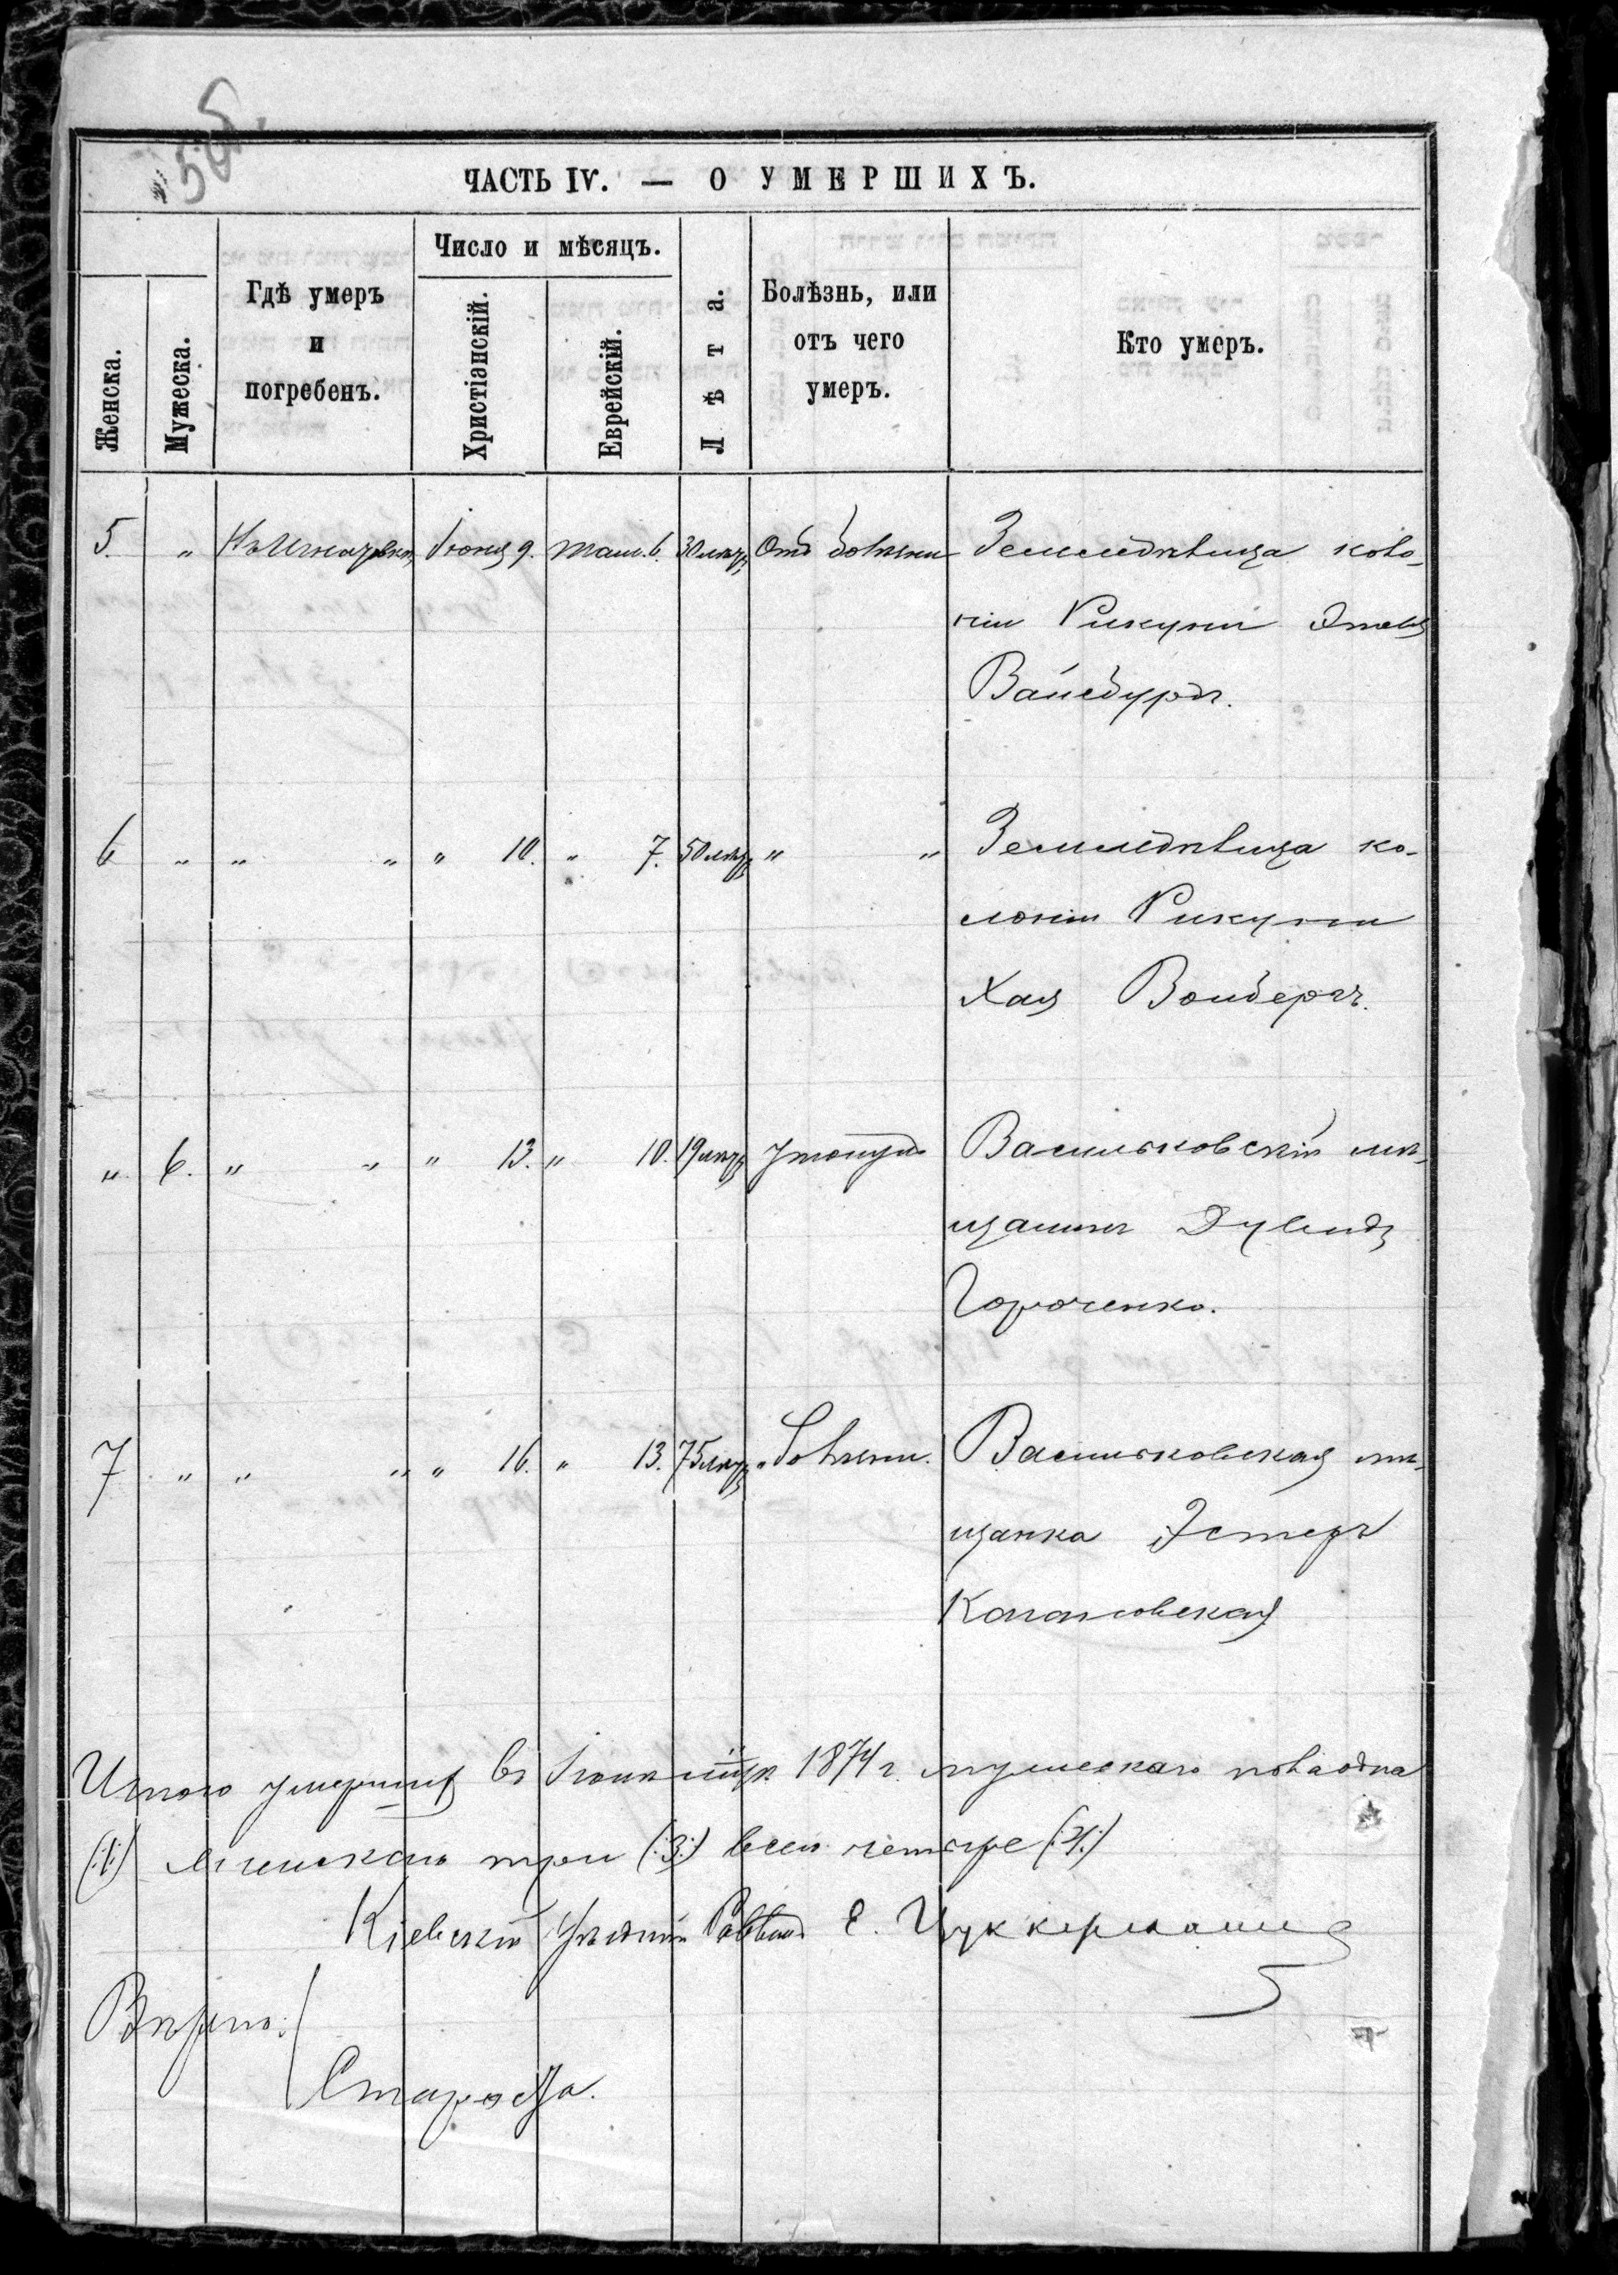 505.
ЧАСТЬ IV. — О УМЕРШИХЪ.
Женска.
Мужеска.
Гдѣ умеръ
и
погребенъ.
Число и мѣсяцъ.
Христіанскій.
Еврейскій.
Лѣта.
Болѣзнь, или
отъ чего
умеръ.
Кто умеръ.
5. „ Іюня 9. Там. 6. 30 лѣтъ Отъ болѣзни Земледѣлица коло-
ніи Рикуни
Вайсбурдъ.
6 „ „ „ „ 10. „ 7. 50 лѣтъ „ „ Земледѣлица ко-
лоніи Рикуни
Хая Вонбергъ.
„ 6. „ „ „ 13. „ 10. 19 лѣтъ утонулъ Васильковскій мѣ-
щанинъ Дувидъ
Гороченко.
7 „ „ „ „ 16. „ 13. 75 лѣтъ „ болѣзни. Васильковская мѣ-
щанка Эстеръ
Кагановская
Итого умершихъ въ Іюнѣ м-цѣ 1874 г. мужескаго пола одна
(:1:) женскаго три (:3:) всего четыре (:4:)
Кіевскій Уѣздный Раввинъ Е. Цуккерманъ
Вѣрно:
Староста.